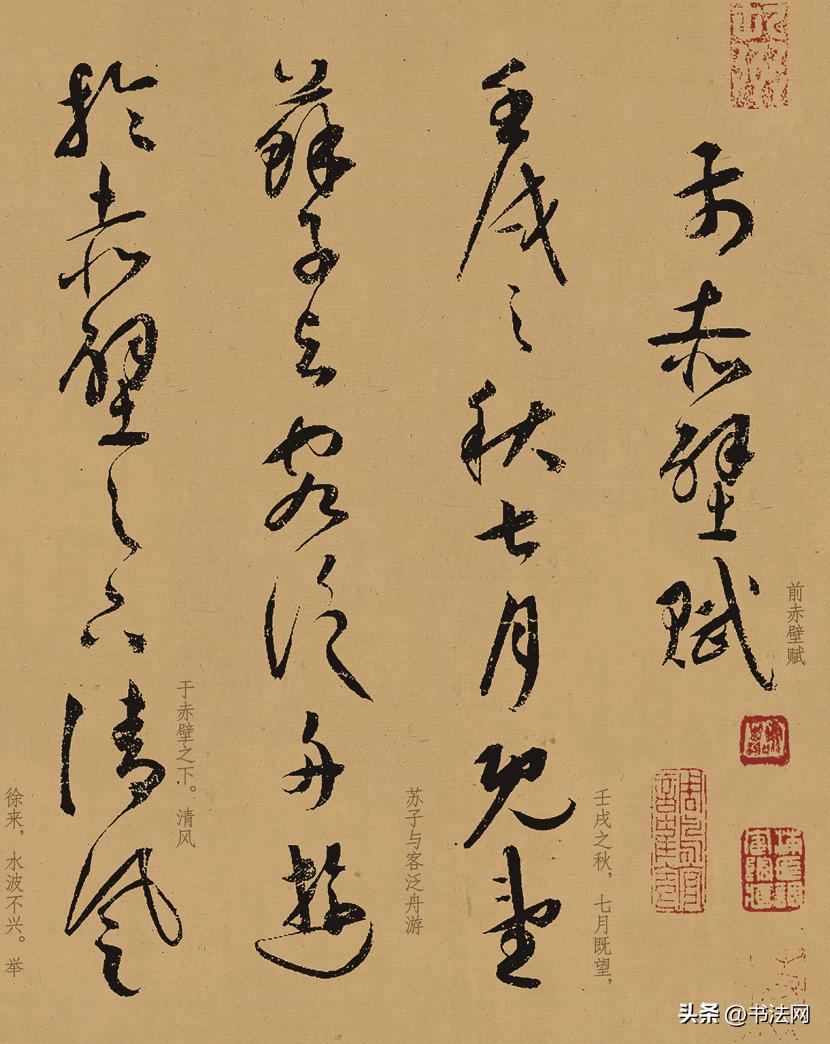 前赤壁賦
前赤壁赋
壬戌之秋七月既望
壬戌之秋，七月既望，
蘇子与客泛舟遊
苏子与客泛舟游
於赤壁之下清風
于赤壁之下。清风
徐来，水波不兴。举
头条 @书法网